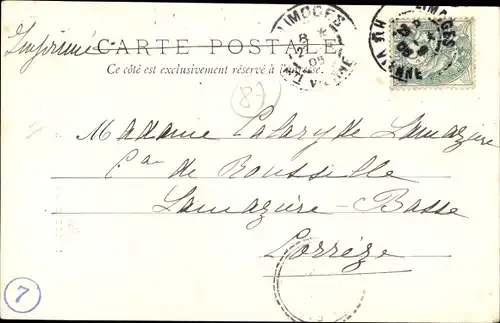 Imprimé
CARTE POSTALE
Ce côté est exclusivement réservé à l'adresse.
LIMOGES
8
12
05
VIENNE
LIMOGES
VIENNE
(87)
Madame Calary de Lamazière
de Roussille
Lamazière-Basse
Corrèze
7